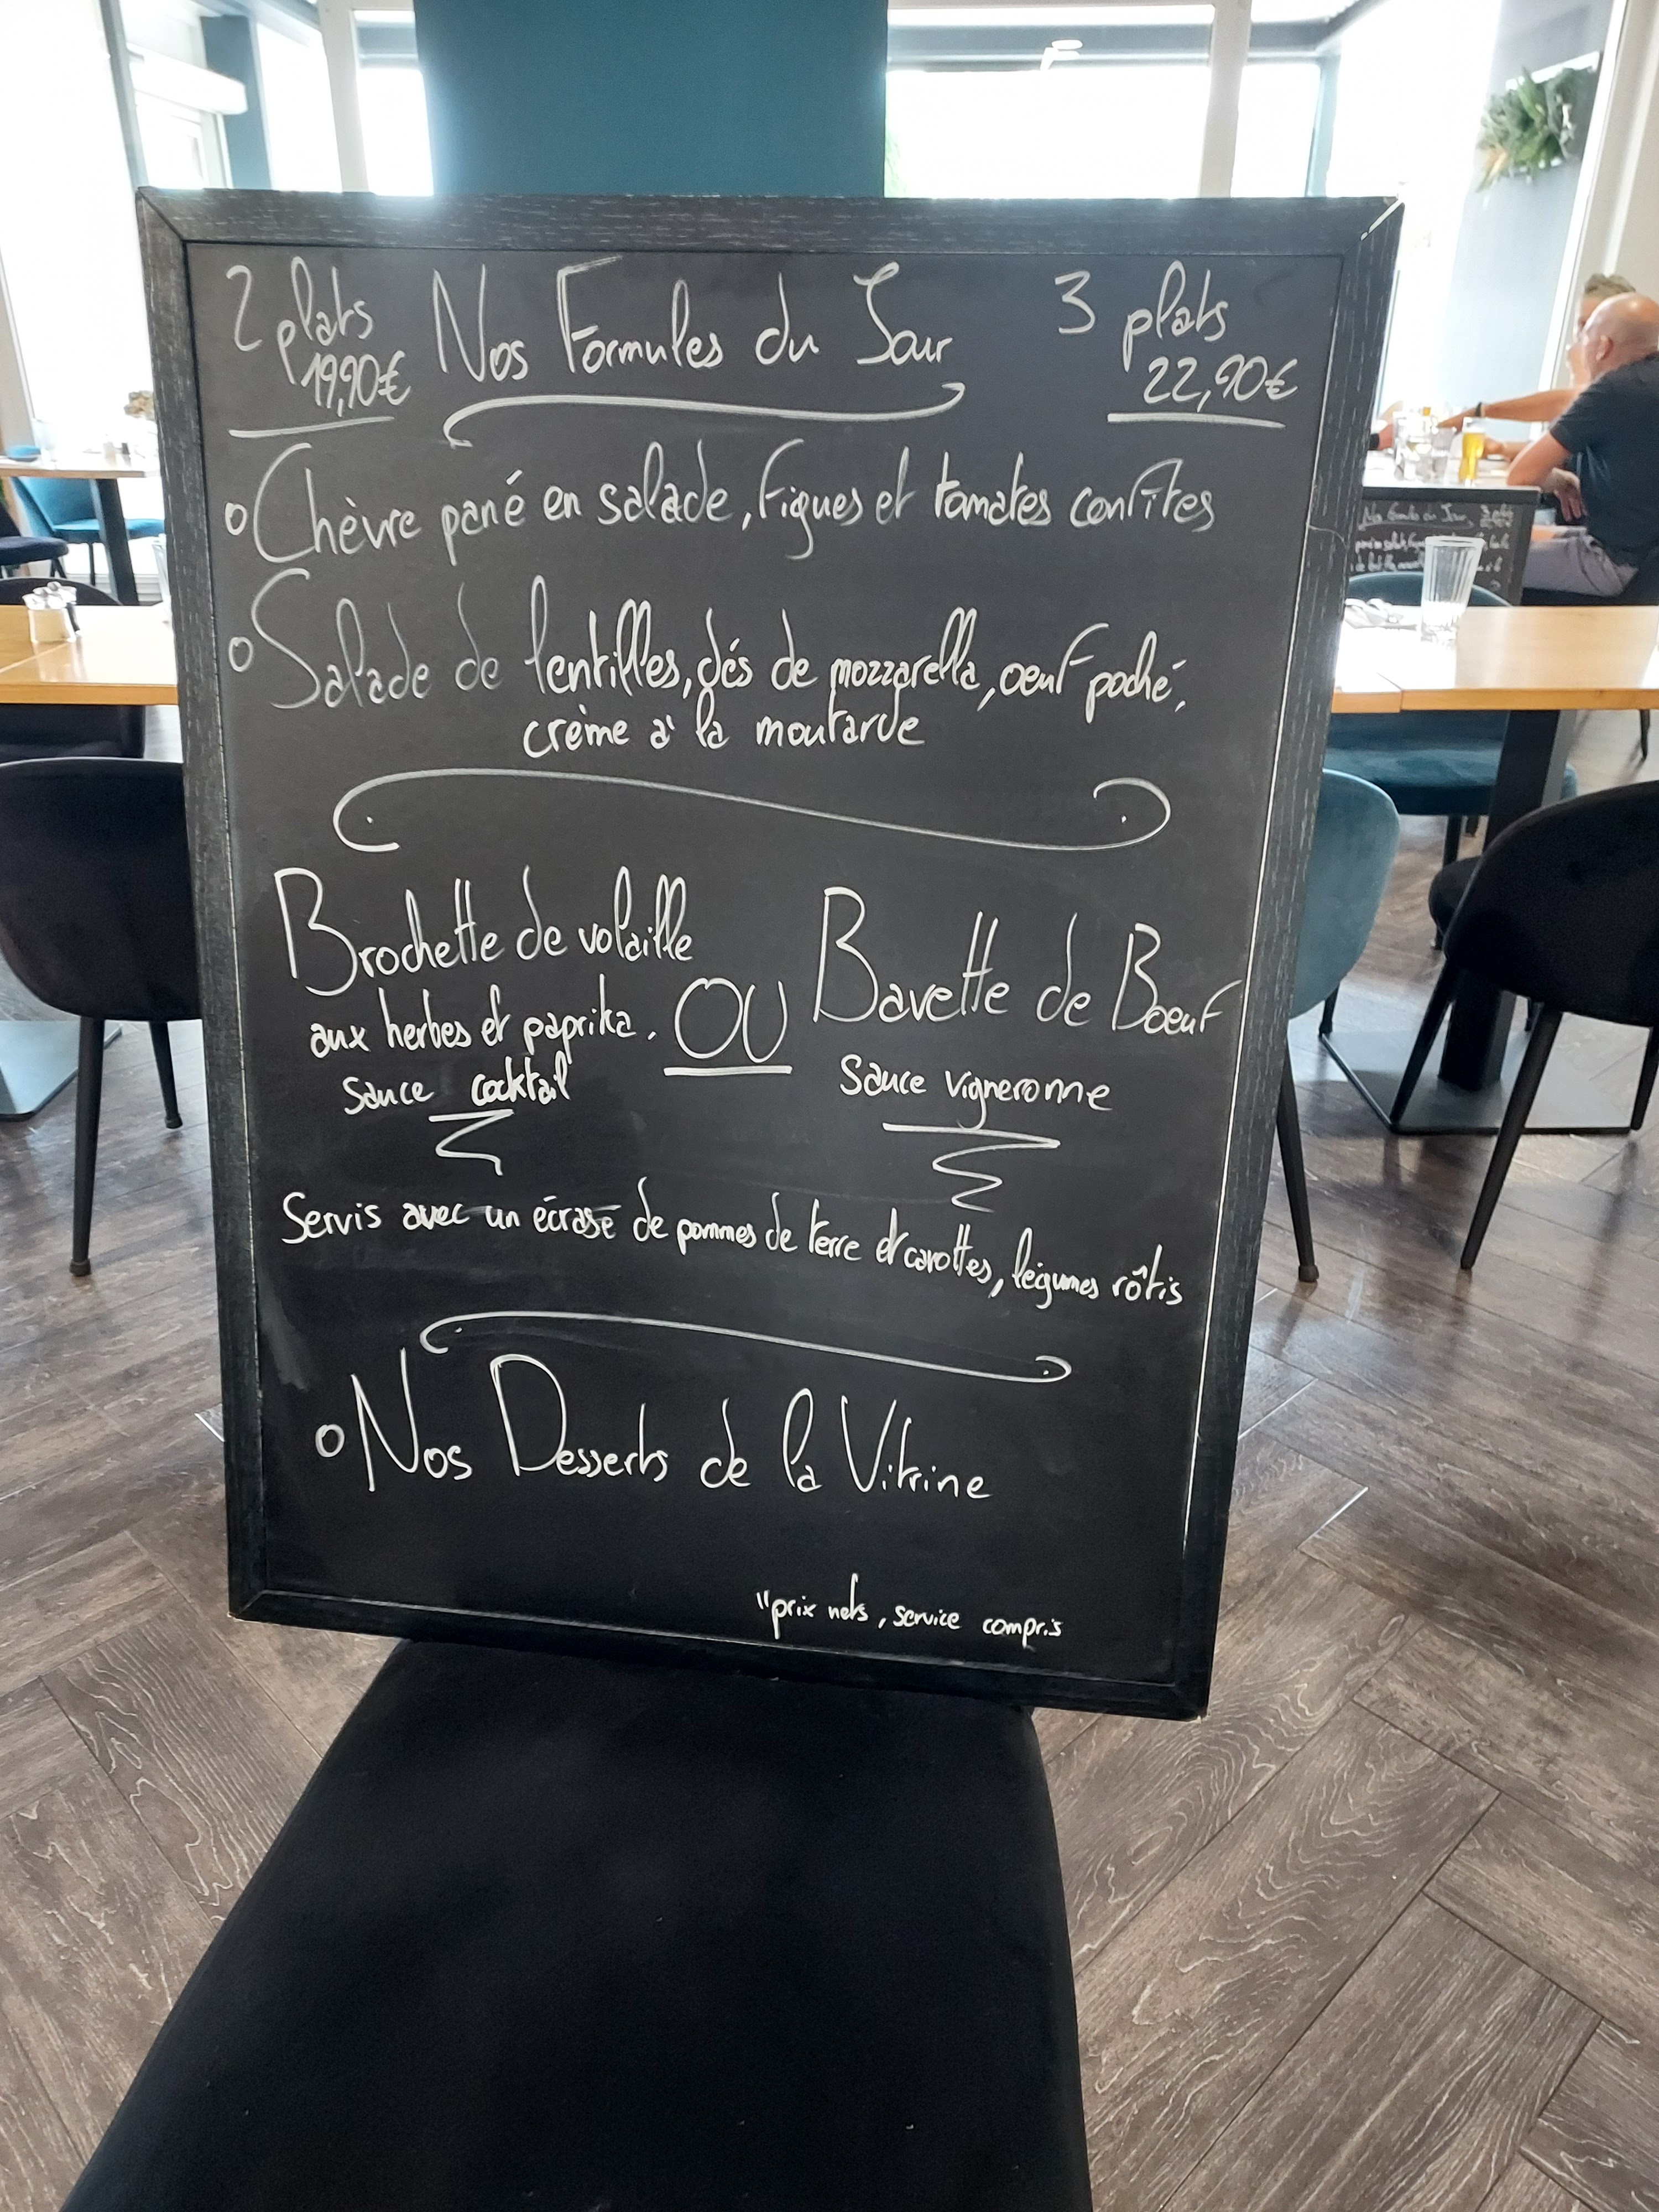 2 plats
19,90€
Nos Formules du Jour
3 plats
22,90€
Chèvre pané en salade, figues et tomates confites
Salade de lentilles, dés de mozzarella, oeuf poché,
crème à la moutarde
Brochette de volaille
aux herbes et paprika.
sauce cocktail
OU
Bavette de Boeuf
Sauce vigneronne
Servis avec un écrasé de pommes de terre et carottes, légumes rôtis
Nos Desserts de la Vitrine
"prix nets, service compris
Nos Formules du Jour